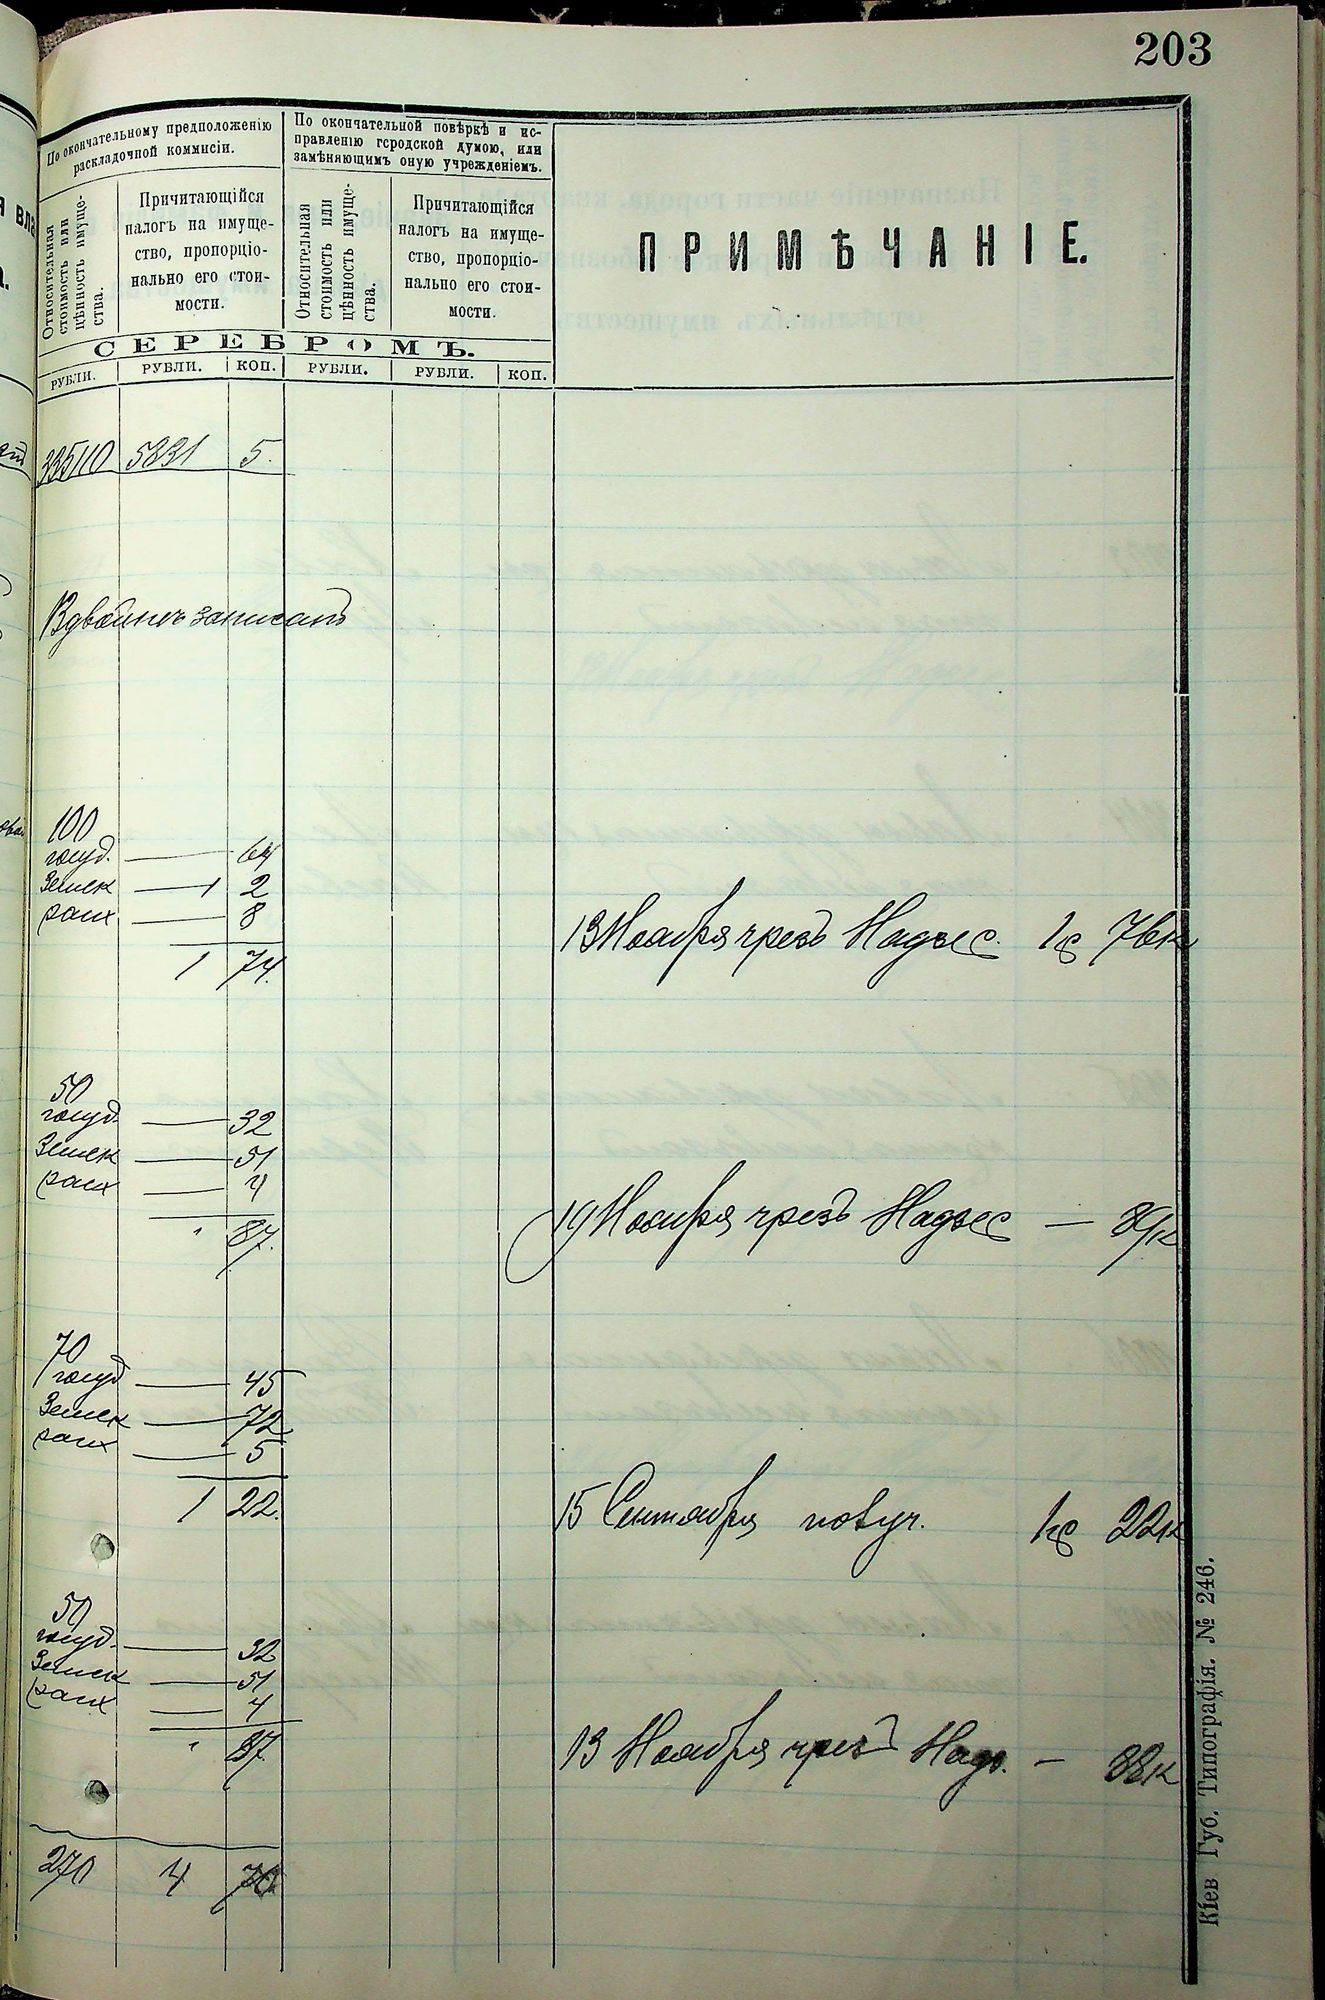 203
По окончательному предположенію
раскладочной коммисіи.
По окончательной повѣркѣ и ис-
правленію городской думою, или
замѣняющимъ оную учрежденіемъ.
Относительная
стоимость или
цѣнность имуще-
ства.
Причитающійся
налогъ на имуще-
ство, пропорціо-
нально его стои-
мости.
Относительная
стоимость или
цѣнность имуще-
ства.
Причитающійся
налогъ на имуще-
ство, пропорціо-
нально его стои-
мости.
ПРИМѢЧАНІЕ.
СЕРЕБРОМЪ.
РУБЛИ. РУБЛИ. КОП. РУБЛИ. РУБЛИ. КОП.
335110 5831 5.
Вдвойнѣ записанъ
100
госуд. — 64
Земск — 1 2
расх — 8
1 74.
13 Ноября чрезъ Надзс. 1р 76к
50
госуд. — 32
Земск — 51
расх — 4
" 87.
19 Ноября чрезъ Надзс — 89к
70
госуд — 45
Земск — 72
расх — 5
1 22.
15 Сентября получ. 1р 22к
50
госуд. — 32
Земск — 51
расх — 4
" 87
13 Ноября чрезъ Надз. — 88к
270 4 70
Кіев Губ. Типографія. № 246.